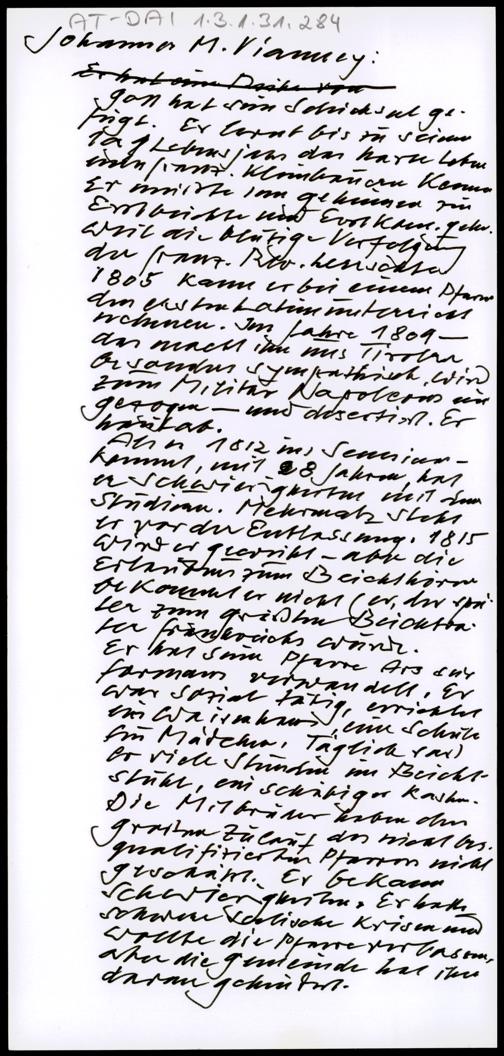 AT-DAI 1.3.1.31.284
Johannes M. Vianney:
Er hat eine Reihe von
Gott hat sein Schicksal ge-
fügt. Er lernt bis zu seinem
Lebensjahr das harte Leben
eines franz. Kleinbauern kennen
Er musste im geheimen zur
Erstbeichte und Erstkom. gehn.
weil die blutige Verfolgung
der franz. Rev. herrschte
1805 kann er bei einem Pfarrer
den ersten Lateinunterricht
nehmen. Im Jahre 1809 –
das macht ihn uns Tiroler
besonders sympathisch, wird
zum Militär Napoleons ein
gezogen – und desertiert. Er
haut ab.
Als er 1812 ins Seminar
kommt, mit 28 Jahren, hat
er Schwierigkeiten mit dem
Studium. Mehrmals steht
er vor der Entlassung. 1815
wird er geweiht – aber die
Erlaubnis zum Beichthören
bekommt er nicht (er, der spä-
ter zum größten Beichtva-
ter Frankreichs würde.
Er hat seine Pfarre Ars
verwandelt. Er
war sozial tätig, errichtet
ein Waisenhaus, eine Schule
für Mädchen. Täglich saß
er viele Stunden im Beicht-
stuhl, ein schäbiger Kasten.
Die Mitbrüder haben den
großen Zulauf des nicht bes.
qualifizierten Pfarrers nicht
geschätzt. Er bekam
Schwierigkeiten. Er hatte
schwere seelische Krisen und
wollte die Pfarre verlassen,
aber die Gemeinde hat ihn
daran gehindert.